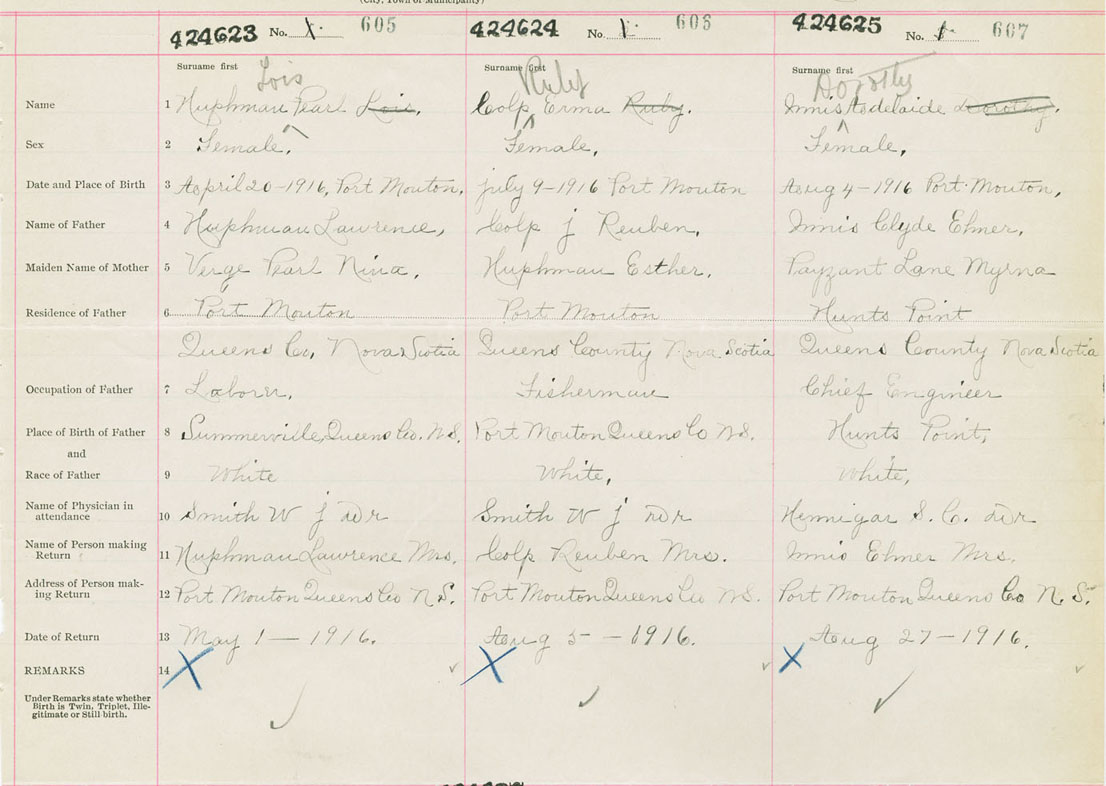 (City, Town or Municipality)
424623 No. 1 605 424624 No. 1 606 424625 No. 1 607
Surname first Lois Surname first Ruby Surname first Dorothy
Name 1 Huphman Pearl Lois. Colp Erma Ruby. Innis Adelaide Dorothy.
Sex 2 Female. Female, Female,
Date and Place of Birth 3 April 20-1916, Port Mouton, july 9-1916 Port Mouton Aug 4-1916 Port Mouton,
Name of Father 4 Huphman Lawrence, Colp j Reuben, Innis Clyde Elmer,
Maiden Name of Mother 5 Verge Pearl Nina, Huphman Esther, Payzant Lane Myrna
Residence of Father 6 Port Mouton Port Mouton Hunts Point
Queens Co, Nova Scotia Queens County Nova Scotia Queens County Nova Scotia
Occupation of Father 7 Laborer, Fisherman Chief Engineer
Place of Birth of Father 8 Summerville, Queens Co. N.S. Port Mouton Queens Co N.S. Hunts Point,
and
Race of Father 9 White White, White,
Name of Physician in
attendance 10 Smith W j Dr Smith W j Dr Hennigar S. C. Dr
Name of Person making
Return 11 Huphman Lawrence Mrs. Colp Reuben Mrs. Innis Elmer Mrs.
Address of Person mak-
ing Return 12 Port Mouton Queens Co N.S. Port Mouton Queens Co N.S. Port Mouton Queens Co N.S.
Date of Return 13 May 1-1916. Aug 5-1916. Aug 27-1916.
REMARKS 14
Under Remarks state whether
Birth is Twin, Triplet, Ille-
gitimate or Still-birth.